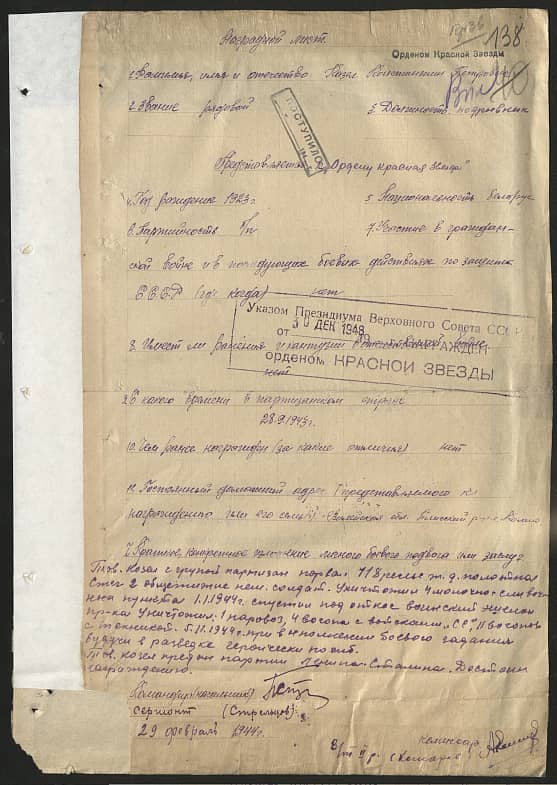 138
Наградной лист.
Орденом Красной Звезды
1. Фамилия, имя и отчество Козел Константин Петрович
2. Звание рядовой 3. Должность подрывник
ПОСТУПИЛО
Представляется к Ордену "Красная Звезда"
4. Год рождения 1923 г. 5. Национальность Беларус
6. Партийность б/п 7. Участие в граждан-
ской войне и в последующих боевых действиях по защите
С.С.С.Р. (где когда) нет
Указом Президиума Верховного Совета СССР
от 30 ДЕК 1948 НАГРАЖДЕН
орденом КРАСНОЙ ЗВЕЗДЫ
8. Имеет ли ранения и контузии
нет
9. С какого времени в партизанском отряде
28.9.1943 г.
10. Чем ранее награжден (за какие отличия) нет
11. Постоянный домашний адрес представляемого к
награждению или его семьи обл.
Краткое, конкретное изложение личного боевого подвига или заслуг
Тов. Козел с групой партизан порвал 118 рельс ж.д. полотна
Сжег 2 общежития нем. солдат. Уничтожил 4 молочно-сливоч-
пункта 1.1.1944 г. спустил под откос воинский эшелон
пр-ка уничтожил: 1 паровоз, 4 вагона с войсками "СС" 11 вагонов
с техникой. 5.11.1944 г. при выполнении боевого задания
будучи в разведке героически погиб.
Тов. Козел предан партии Ленина-Сталина. Достоин
награждению.
Командир
сержант (Стрельцов)
29 февраль 1944 г.
комиссар